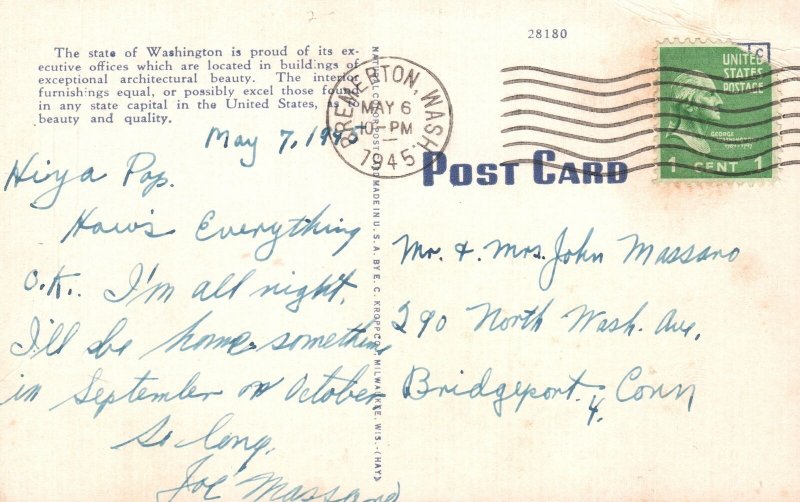 28180
The state of Washington is proud of its ex-
ecutive offices which are located in buildings of
exceptional architectural beauty. The interior
furnishings equal, or possibly excel those found
in any state capital in the United States, as to
beauty and quality.
May 7, 1945
Hiya Pop.
How's Everything
O.K.. I'm all right.
I'll be home something
in September or October
So long.
Joe Massaro
NATURAL COLOR POST CARD MADE IN U.S.A. BY E. C. KROPP CO., MILWAUKEE, WIS.-(HAY)
BREMERTON, WASH.
MAY 6
10-PM
1945
UNITED
STATES
POSTAGE
GEORGE
WASHINGTON
1 CENT 1
POST CARD
Mr. & Mrs. John Massaro
290 North Wash. Ave.
Bridgeport, Conn
4.